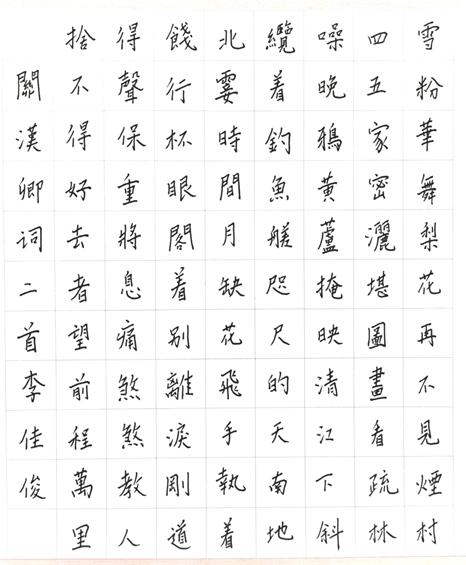 雪粉華舞梨花再不見煙村
四五家密灑堪圖畫看疏林
噪晚鴉黃蘆掩映清江下斜
纜着釣魚艖咫尺的天南地
北霎時間月缺花飛手執着
餞行杯眼閣着别離淚剛道
得聲保重將息痛煞煞教人
捨不得好去者望前程萬里
關漢卿詞二首李佳俊